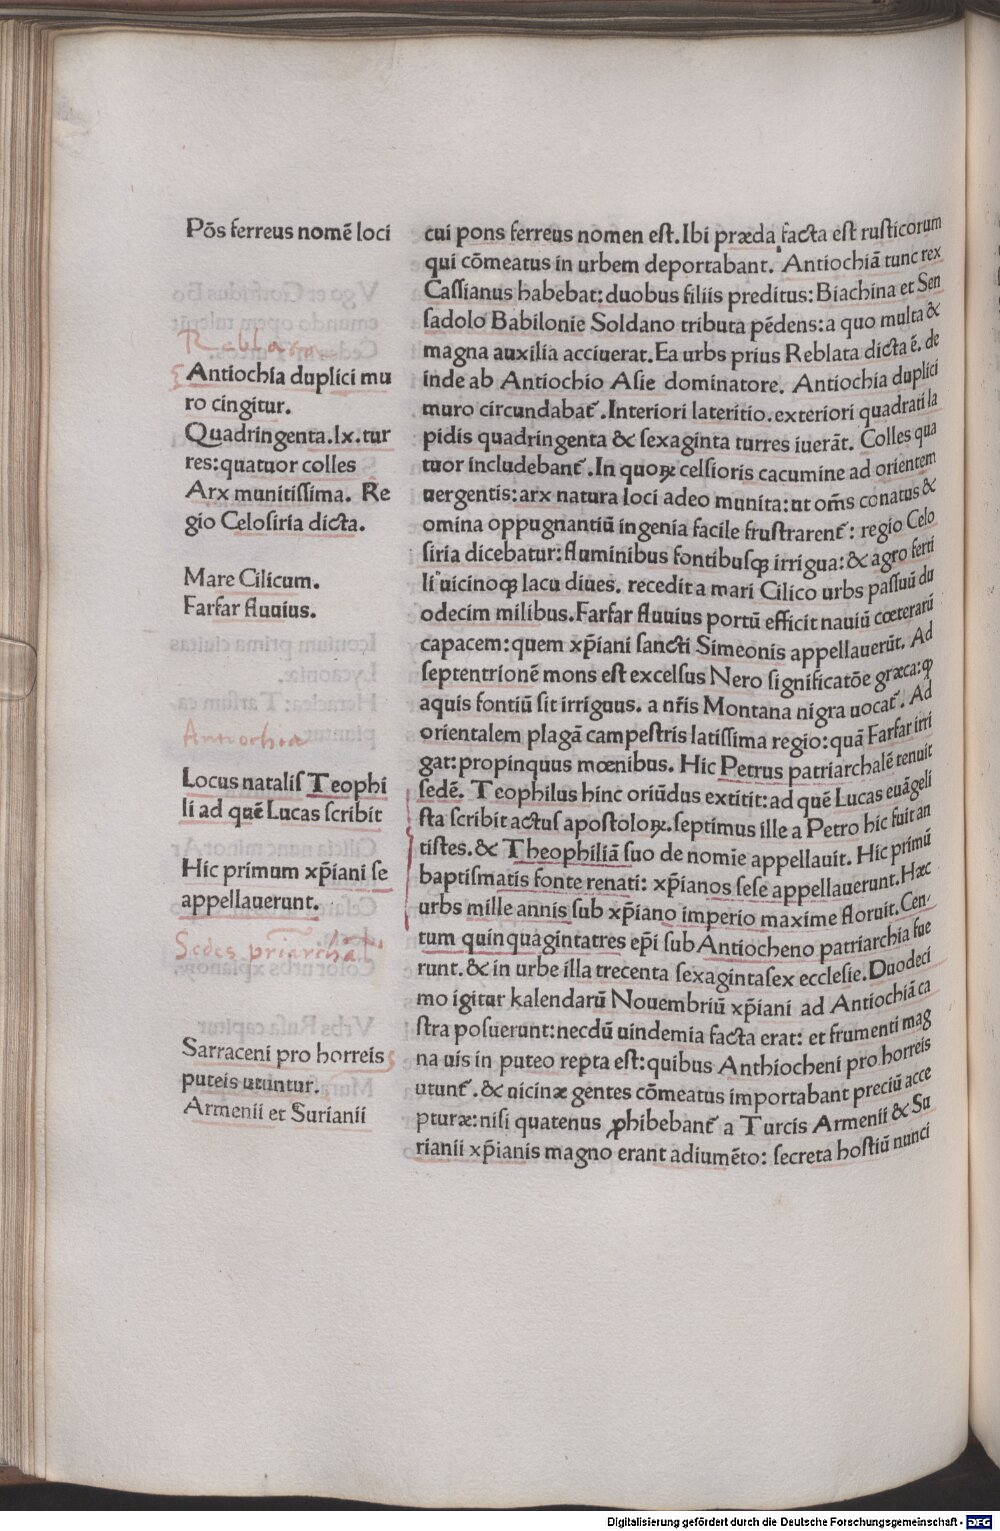 Põs ferreus nomẽ loci
Reblata
Antiochia duplici mu
ro cingitur.
Quadringenta.lx.tur
res:quatuor colles
Arx munitissima. Re
gio Celosiria dicta.
Mare Cilicum.
Farfar fluuius.
Antiochia
Locus natalis Teophi
li ad quẽ Lucas scribit
Hic primum xp̃iani se
appellauerunt.
Sedes p̃riarchal.
Sarraceni pro horreis
puteis utuntur.
Armenii et Surianii
cui pons ferreus nomen est.Ibi præda facta est rusticorum
qui cõmeatus in urbem deportabant. Antiochiã tunc rex
Cassianus habebat:duobus filiis preditus:Biachina et Sen
sadolo Babilonie Soldano tributa pẽdens:a quo multa &
magna auxilia acciuerat.Ea urbs prius Reblata dicta ẽ. de
inde ab Antiochio Asie dominatore. Antiochia duplici
muro circundabat᷑.Interiori lateritio.exteriori quadrati la
pidis quadringenta & sexaginta turres iuerãt. Colles qua
tuor includebant᷑.In quoꝝ celsioris cacumine ad orientem
uergentis:arx natura loci adeo munita:ut om̃s conatus &
omina oppugnantiũ ingenia facile frustrarent᷑: regio Celo
siria dicebatur:fluminibus fontibusꝗ irrigua:& agro ferti
li uicinoꝗ lacu diues. recedit a mari Cilico urbs passuũ du
odecim milibus.Farfar fluuius portũ efficit nauiũ cœterarũ
capacem:quem xp̃iani sancti Simeonis appellauerũt. Ad
septentrionẽ mons est excelsus Nero significatõe græca:ꝙ
aquis fontiũ sit irriguus. a nr̃is Montana nigra uocat᷑. Ad
orientalem plagã campestris latissima regio:quã Farfar irri
gat:propinquus mœnibus. Hic Petrus patriarchalẽ tenuit
sedẽ. Teophilus hinc oriũdus extitit:ad quẽ Lucas euãgeli
sta scribit actus apostoloꝝ.septimus ille a Petro hic fuit an
tistes.& Theophiliã suo de nomĩe appellauit. Hic primũ
baptismatis fonte renati: xp̃ianos sese appellauerunt.Hæc
urbs mille annis sub xp̃iano imperio maxime floruit.Cen-
tum quinquagintatres ep̃i sub Antiocheno patriarchia fue
runt.& in urbe illa trecenta sexagintasex ecclesie.Duodeci
mo igitur kalendarũ Nouembriũ xp̃iani ad Antiochiã ca
stra posuerunt:necdũ uindemia facta erat: et frumenti mag
na uis in puteo repta est:quibus Anthiocheni pro horreis
utunt᷑.& uicinæ gentes cõmeatus importabant preciũ acce
pturæ:nisi quatenus ꝓhibebant᷑ a Turcis Armenii & Su
rianii xp̃ianis magno erant adiumẽto: secreta hostiũ nunci
Digitalisierung gefördert durch die Deutsche Forschungsgemeinschaft - DFG